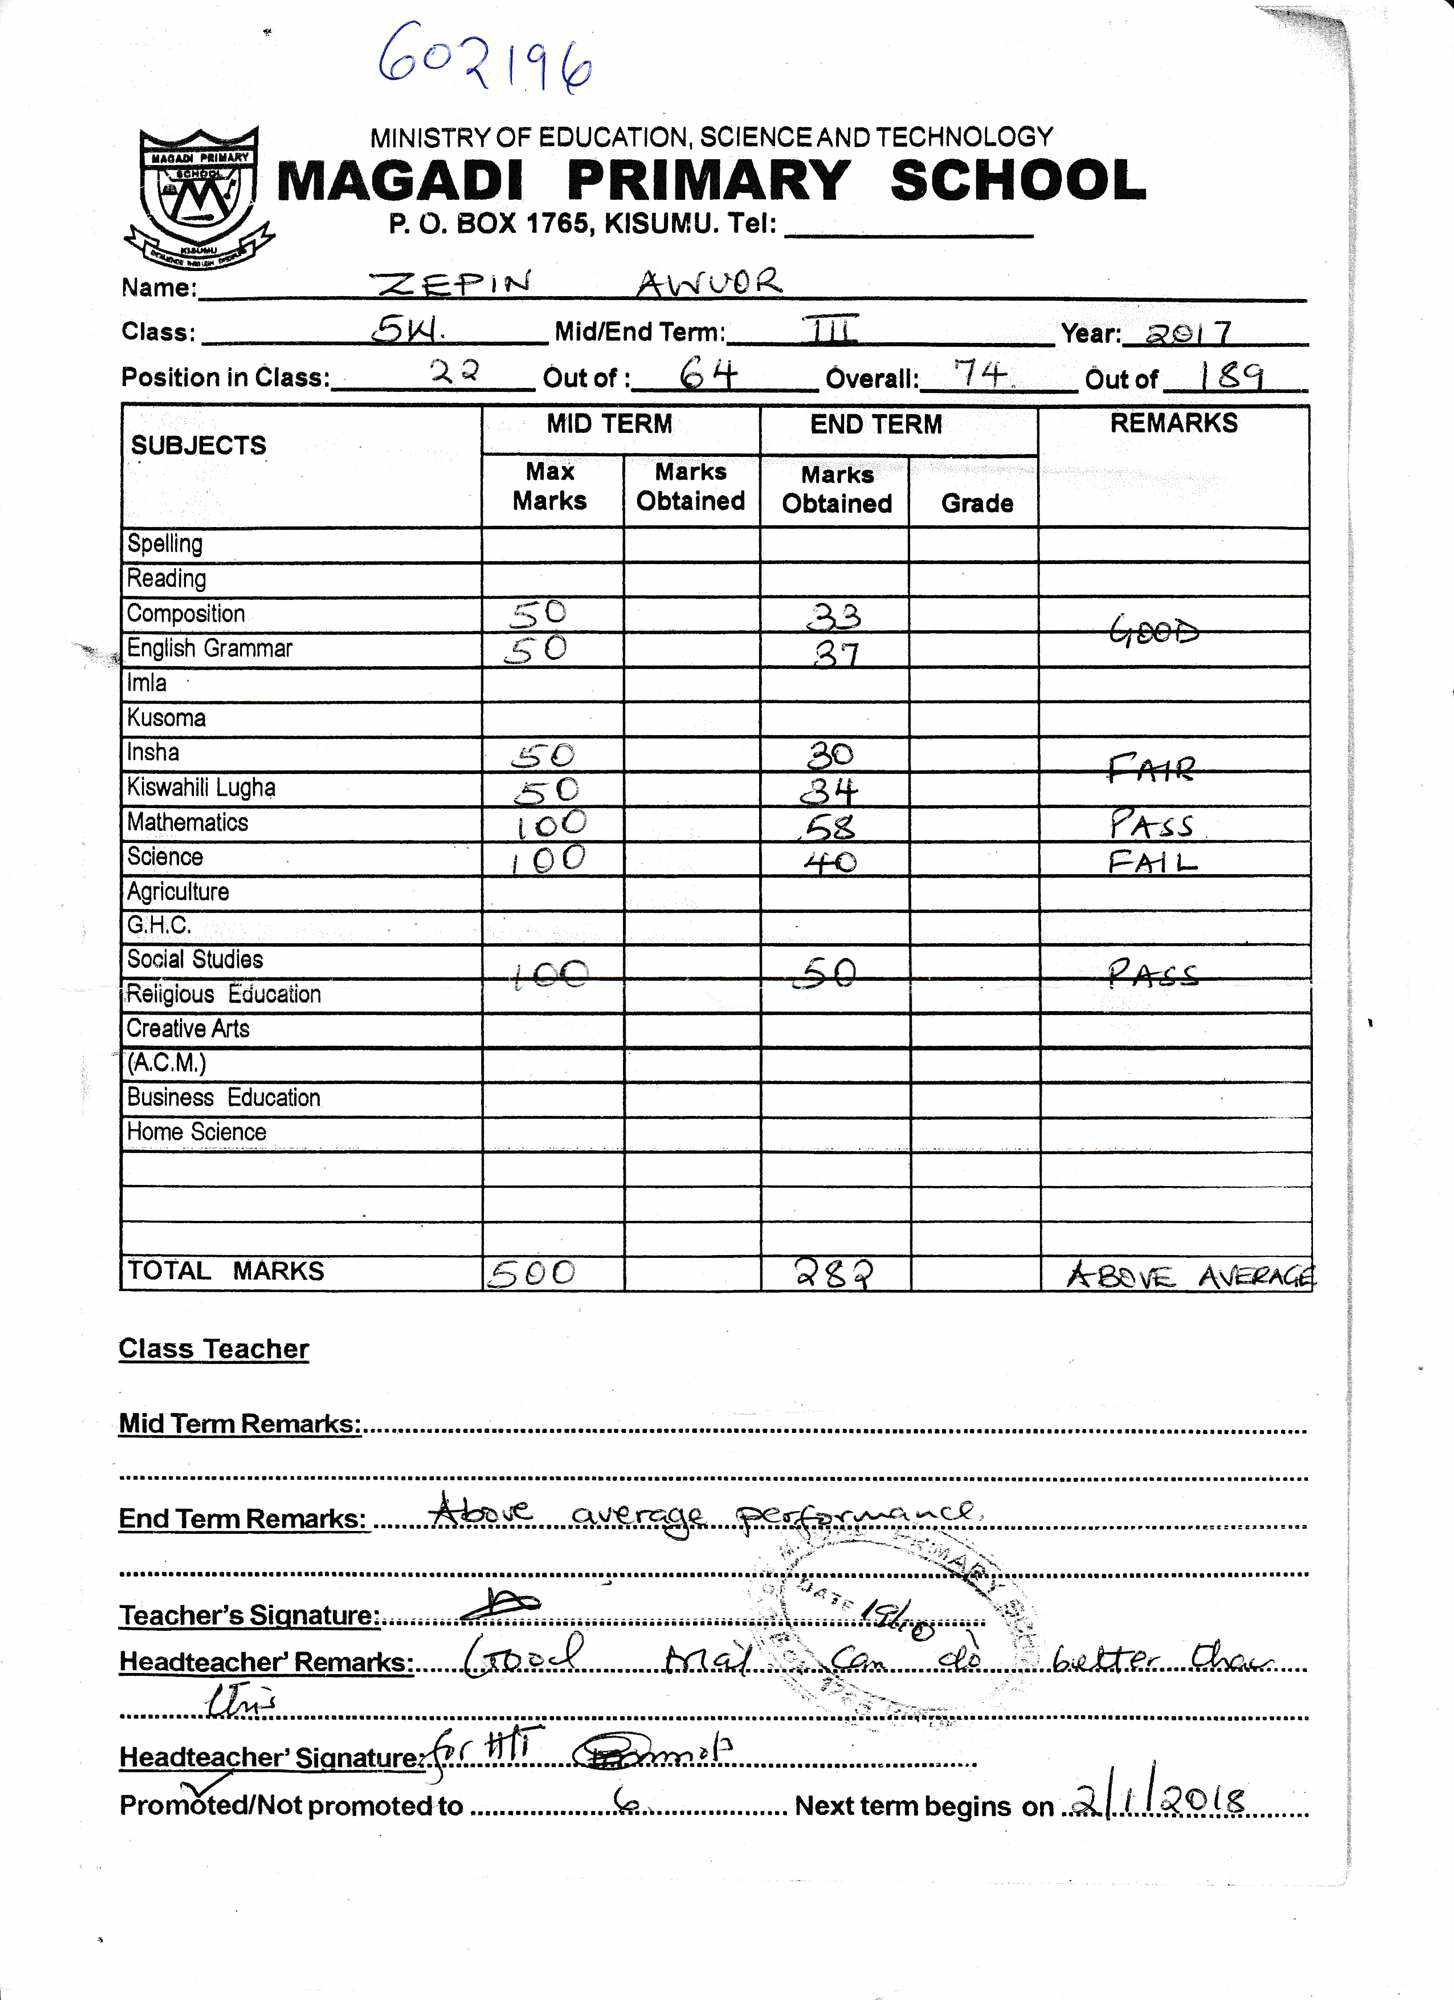 602196
MINISTRY OF EDUCATION, SCIENCE AND TECHNOLOGY
MAGADI PRIMARY SCHOOL
MAGADI PRIMARY
SCHOOL
KISUMU
P. O. BOX 1765, KISUMU. Tel:
Name: ZEPIN AWUOR
Class: 5W. Mid/End Term: III Year: 2017
Position in Class: 22 Out of : 64 Overall: 74. Out of 189
SUBJECTS MID TERM END TERM REMARKS
Max Marks Marks Obtained Marks Obtained Grade
Spelling
Reading
Composition 50 33
GOOD
English Grammar 50 37
Imla
Kusoma
Insha 50 30
FAIR
Kiswahili Lugha 50 34
Mathematics 100 58 PASS
Science 100 40 FAIL
Agriculture
G.H.C.
Social Studies
100 50 PASS
Religious Education
Creative Arts
(A.C.M.)
Business Education
Home Science
TOTAL MARKS 500 282 ABOVE AVERAGE
Class Teacher
Mid Term Remarks:
End Term Remarks: Above average performance.
PRIMARY
DATE 19/10
Teacher's Signature:
Headteacher' Remarks: Good can do better than
this
BOX 1765
Headteacher' Signature: for H/T
Promoted/Not promoted to 6 Next term begins on 2/1/2018